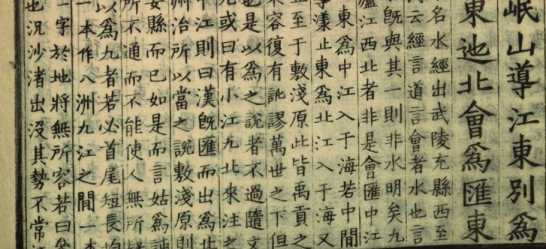 岷山導江東別爲
東迆北會爲匯東
名水經出武陵充縣西至
云經言道言會者水也言
旣與其一則非水明矣九
廬江西北者非是會匯中江
東爲中江入于海若中間
漾止東爲北江入于海又
至于敷淺原此皆禹貢之
容復有訛謬萬世之下但
也是以爲之說者不過隨文
九或曰有小江九北來注之
江則曰漢旣匯而出爲北
州治所以當之說敷淺原則
縣而已如是而言姑爲誦
所不通而不能使人無所
以爲九者若必首尾短長均
一本作八洲九江之間一本
一字於地將無所容若曰
也沉沙渚出没其勢不常